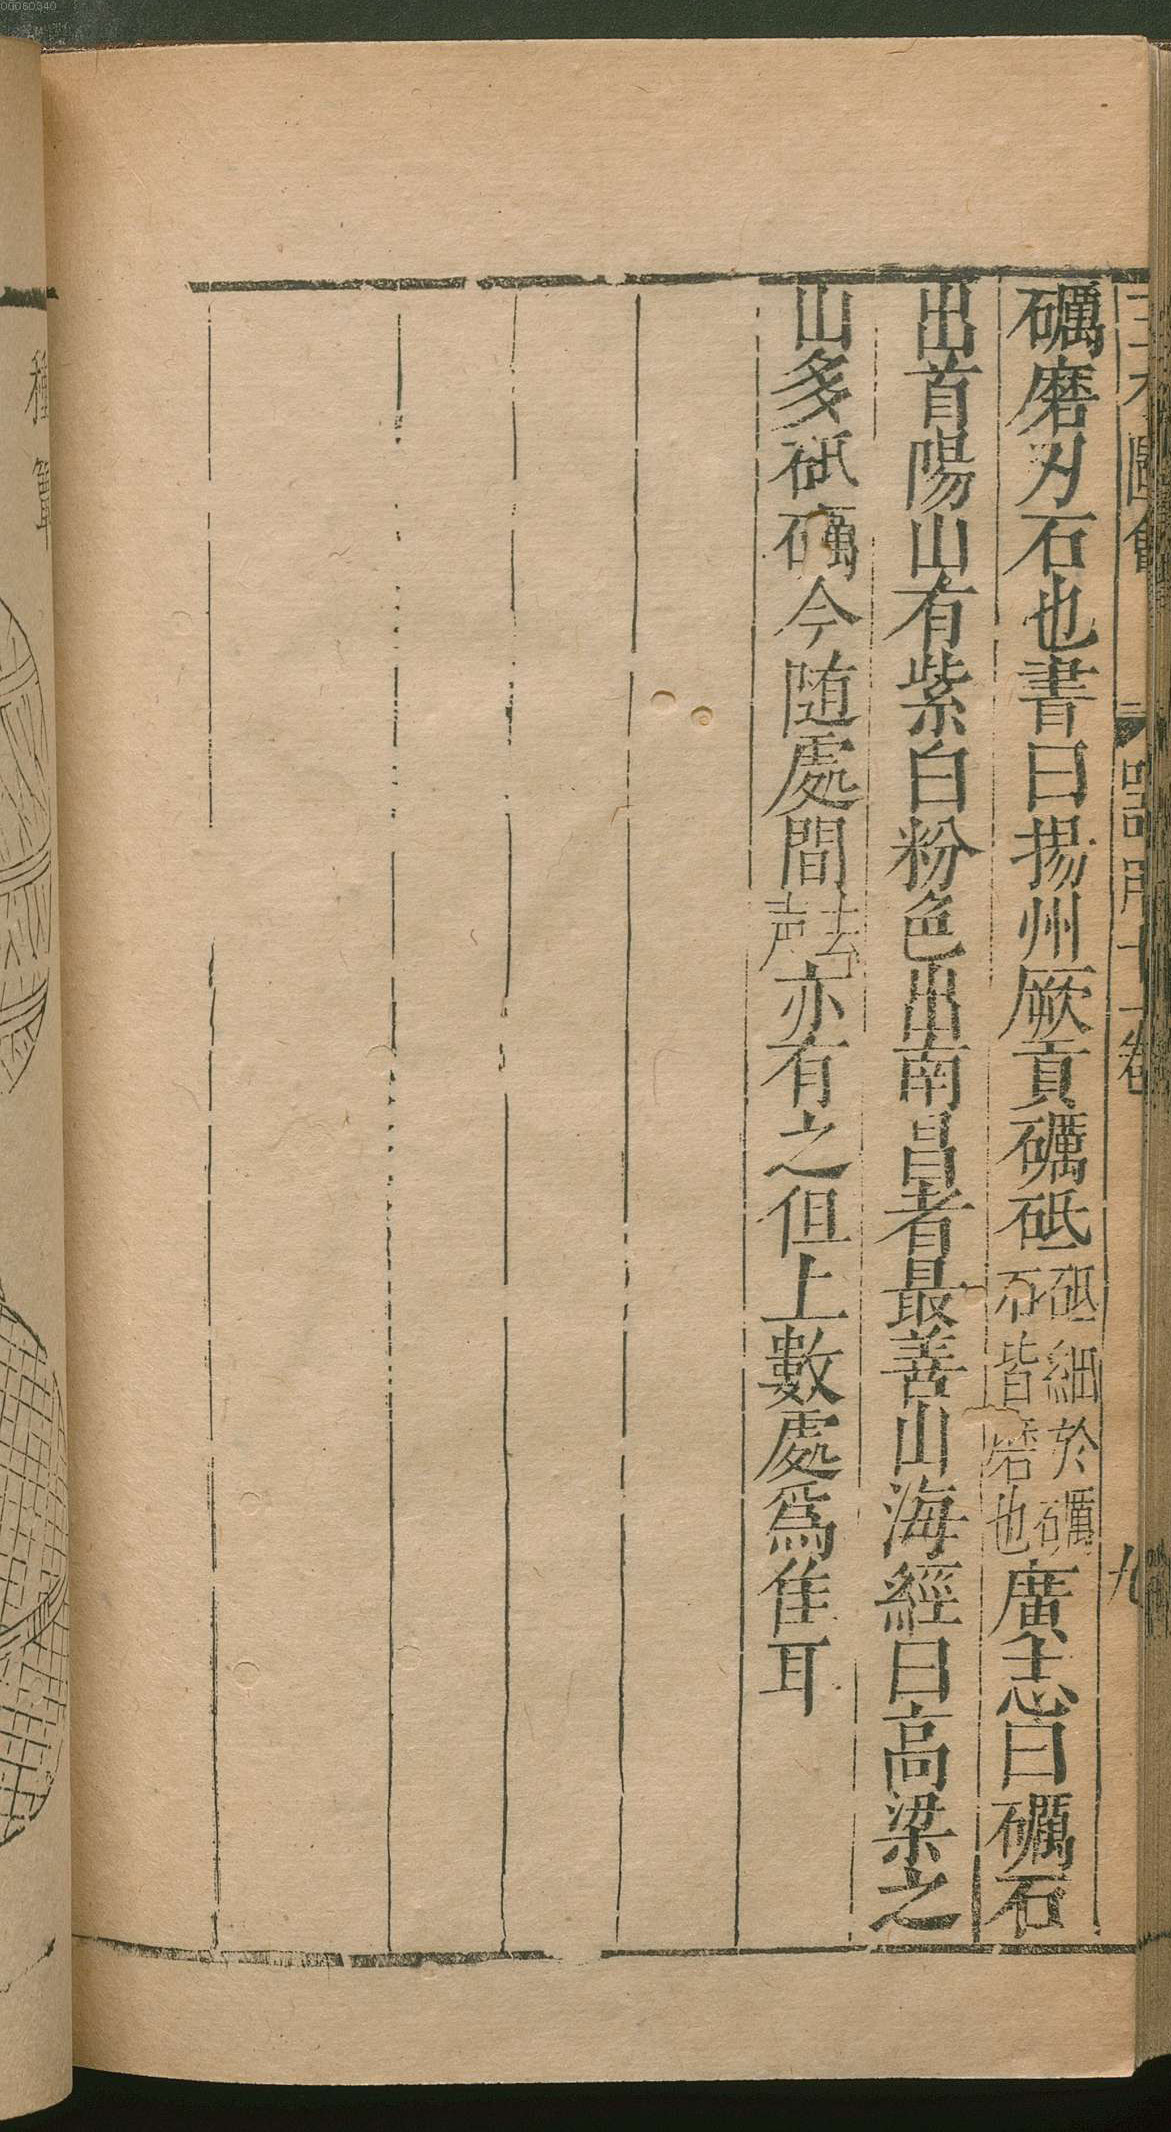 三才圖會 器用十一卷 九
礪磨刃石也書曰揚州厥貢礪砥砥細於礪石皆磨也廣志曰礪石
出首陽山有紫白粉色出南昌者最善山海經曰高梁之
山多砥礪今随處間去声亦有之但上數處爲佳耳
種簞
00060340